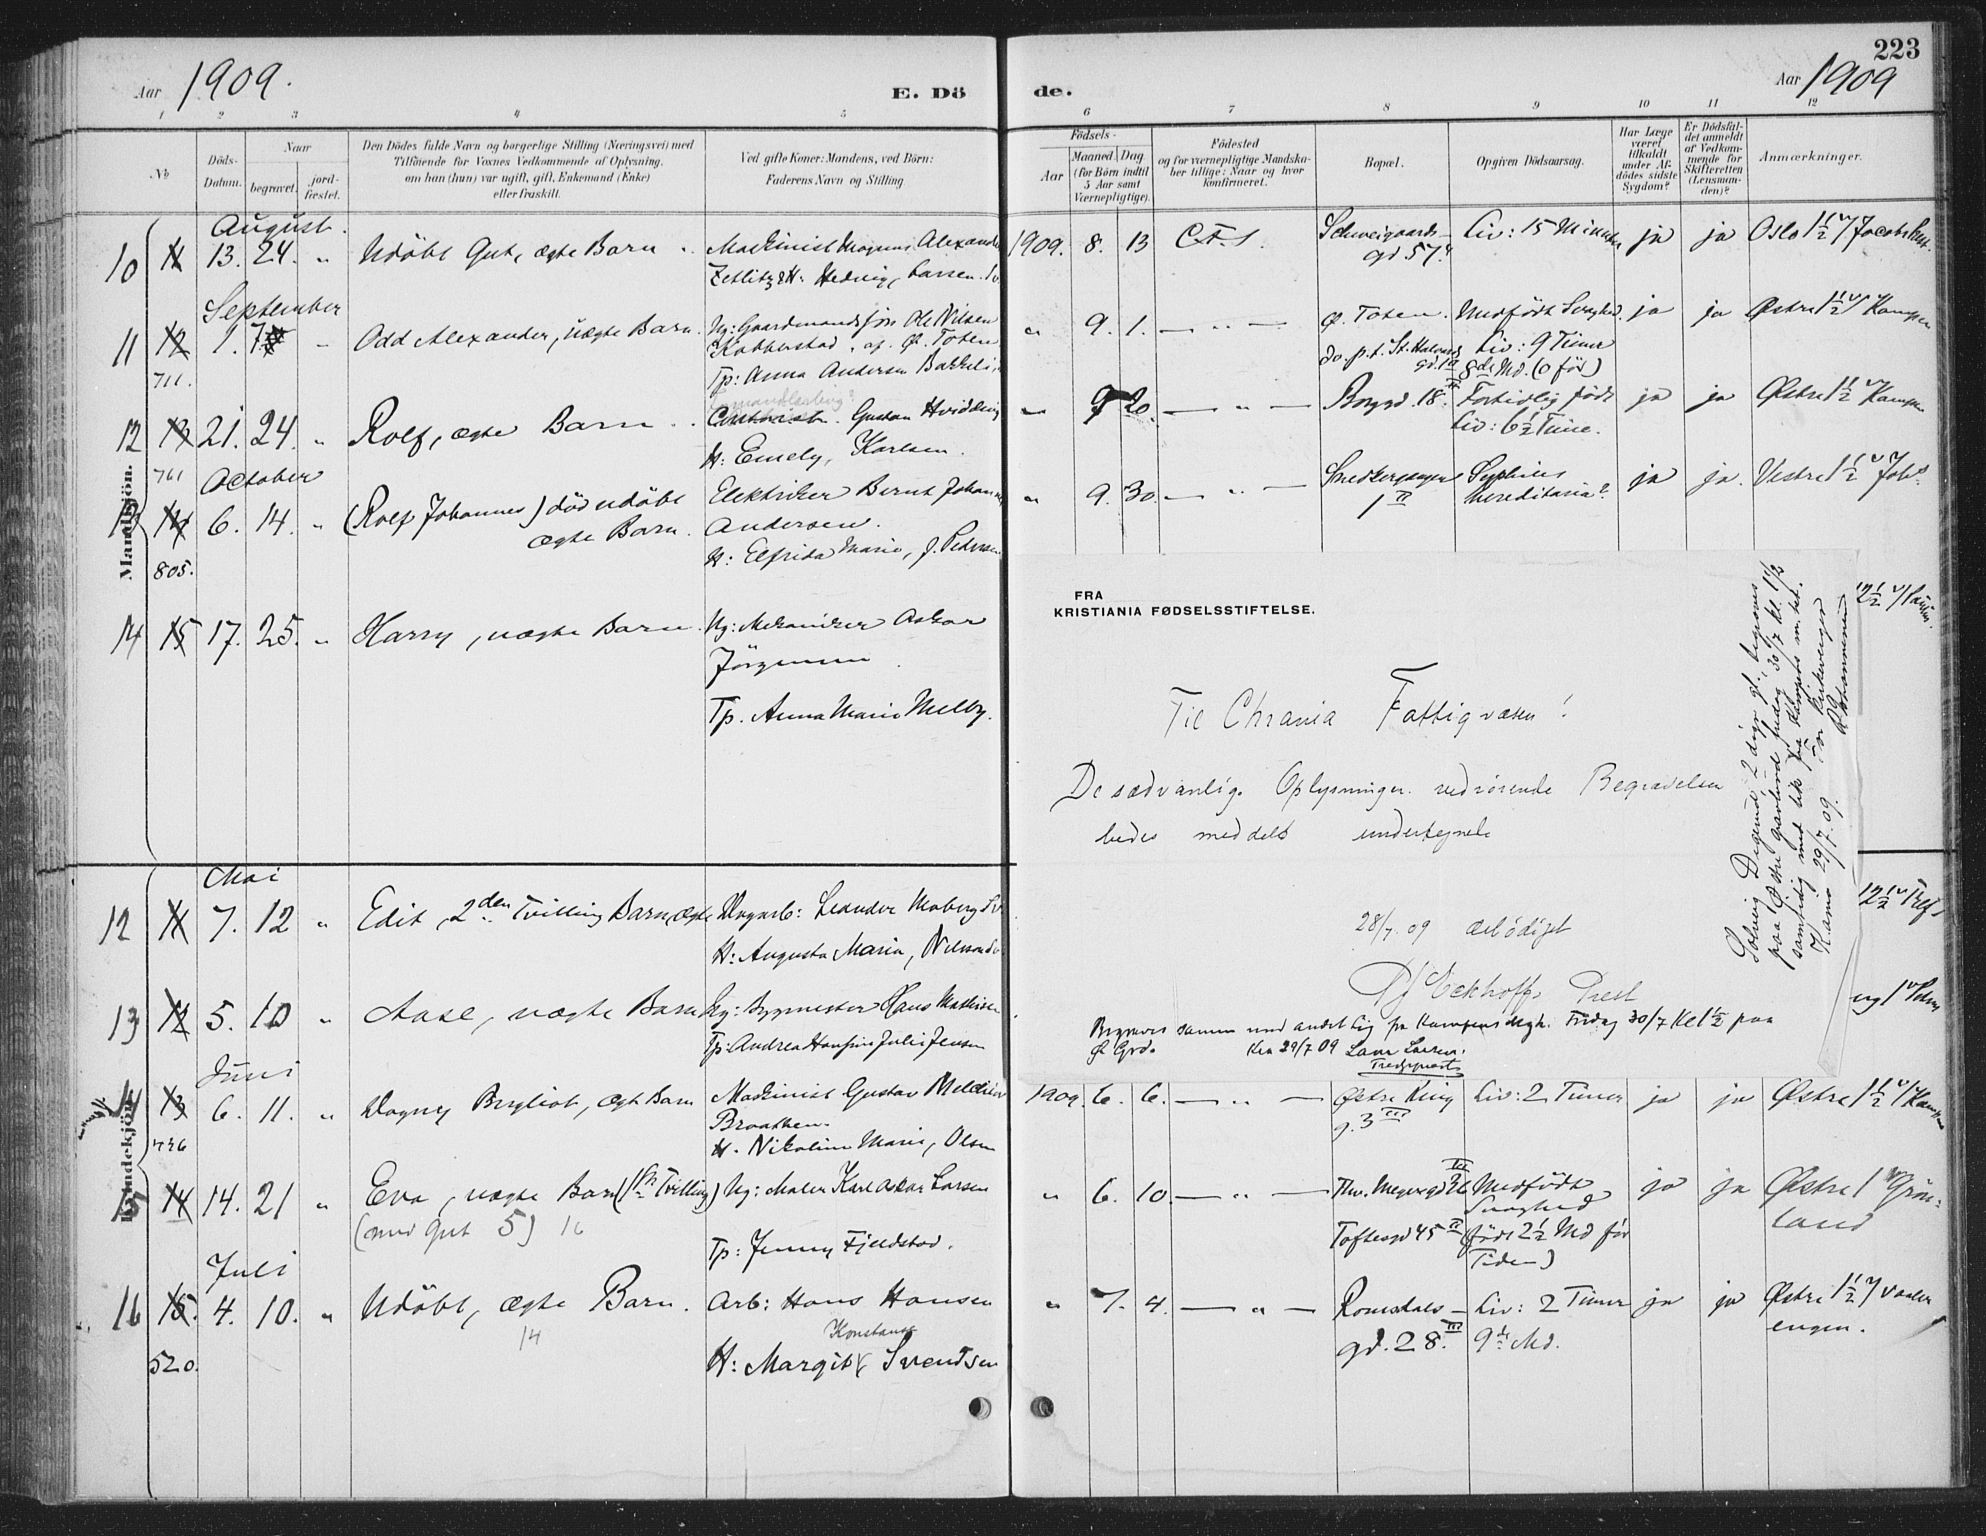 Aar 1909.
E. Dö
de.
223
Aar 1909
1 2 3 4 5
6 7 8 9 10 11 12
No
Döds-
Datum.
Naar
begravet.
jord-
fæstet.
Den Dödes fulde Navn og borgerlige Stilling (Næringsvei) med
Tilföiende for Voxnes Vedkommende af Oplysning,
om han (hun) var ugift, gift, Enkemand (Enke)
eller fraskilt.
Ved gifte Koner: Mandens, ved Börn:
Faderens Navn og Stilling.
Födsels-
Aar
Maaned. Dag.
(for Børn indtil
5 Aar samt
Værnepligtige).
Födested
og for værnepligtige Mandska-
ber tillige: Naar og hvor
konfirmeret.
Bopæl.
Opgiven Dödsaarsag.
Har Læge
været
tilkaldt
under Af-
dödes sidste
Sygdom?
Er Dödsfal-
det anmeldt
af Vedkom-
mende for
Skifteretten
(Lensman-
den)?
Anmærkninger.
Mandkjön.
August.
10 11 13. 24. " Udöbt Gut, ægte Barn. Maskinist Magnus Alexander
Zetlitz & H: Hedvig, Larsen.
1909. 8. 13 C.F.S. Schweigaards-
gd 57. Liv: 15 Minuter ja ja Oslo 1 1/2
September
11 12 1. 7 Odd Alexander, uægte Barn. Ug: Gaardmandssön Ole Nilsen
Kobberstad, af Ö. Toten
Tp: Anna Andersen Bakkeli
711.
" 9. 1. — " — Ø. Toten. Medfödt Svaghed. ja ja Østre 1 1/2 / Kampen
do. p.t. St. Halvards
gd. 1a Liv: 9 Timer
8de Md. (o för)
12 13 21. 24. " Rolf, ægte Barn. Gustav
H: Emely, Karlsen.
761
" 9 20. — " — Borggd. 18. Fortidlig födt
Liv: 6 1/2 Time. ja ja Østre 1 1/2 Kampen
October
13 14 6. 14. " (Rolf Johannes) död udöbt
ægte Barn. Elektriker Bernt Johannes
Andersen.
H: Elfrida Marie, J. Pedersen
805.
" 9. 30. — " — Snedkergangen
1 II Syphilis
hereditaria? ja ja. Vestre 1 1/2 Jobs
14 15 17. 25. " Harry, uægte Barn. Ug: Mekaniker Oskar
Jörgensen.
Tp. Anna Marie Melby.
12 1/2
FRA
KRISTIANIA FØDSELSSTIFTELSE.
Til Chrania Fattigvæsen!
De sædvanlige Oplysninger vedrørende Begravelsen
bedes meddelt undertegnede
28/7. 09 ærbödigst
Eckhoff, Prest
Begraves samen med andet Lig fra Kampens Fredag 30/7 Kl 1 1/2 paa
Ø Grd. Kra 29/7 09 Lars Larsen.
Solveig 2 dage gl. begraves
paa Østre gravlund fredag 30/7 kl. 1 1/2
samtidig med lik fra Kampens m. h.
Krania 29/7. 09. For kirkeverger
Kvindekjön
Mai
12 11 7. 12 " Edit, 2den Tvilling Barn, ægte Vognarb: Leander Moberg
H: Augusta Maria, Nilsson
12 1/2
13 12 5. 10 " Aase, uægte Barn Ug: Bygmester Hans Mathisen
Tp: Andrea Hansine Julie Jensen
Juni
14 13 6. 11. " Dagny Bergliot, ægte Barn Maskinist Gustav
Braathen.
H. Nikoline Marie, Olsen
1909. 6. 6. — " — Østre
g. 3 III Liv: 2 Timer ja ja Østre 1 1/2 / Kampen
15 14 14. 21 " Eva, uægte Barn (1ste Tvilling) Ug: Maler Karl Oskar Larsen
(med Gut 5) 16
Tp: Jenny Fjeldstad.
" 6. 10. — " — Thv. Meyersgd 26 Medfödt
Svaghed
Toftesgd 45 II (födt 2 1/2 Md för
Tiden) ja ja Østre 1 Grön-
land
Juli
16 15. 4. 10. " Udöbt, ægte Barn. Arb: Hans Hansen
14
Konstanse
H: Margit, Svendsen
520.
" 7. 4. — " — Romsdals-
gd. 28. III Liv: 2 Timer
9de Md. ja ja Østre 1 1/2 / Vaaler-
engen.